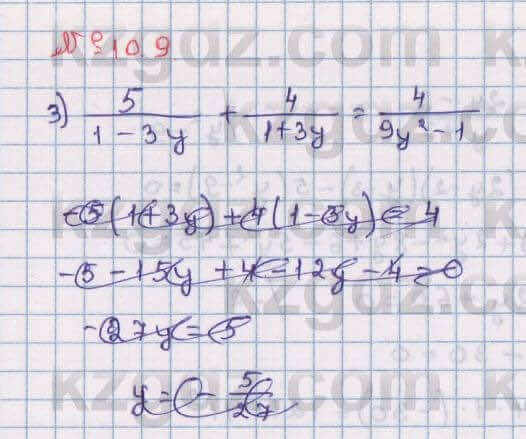 № 10.9
3) 5/(1-3y) + 4/(1+3y) = 4/(9y²-1)
-5(1+3y)+4(1-3y)=4
-5-15y+4-12y-4=0
-27y=5
y=-5/27
kzgdz.com